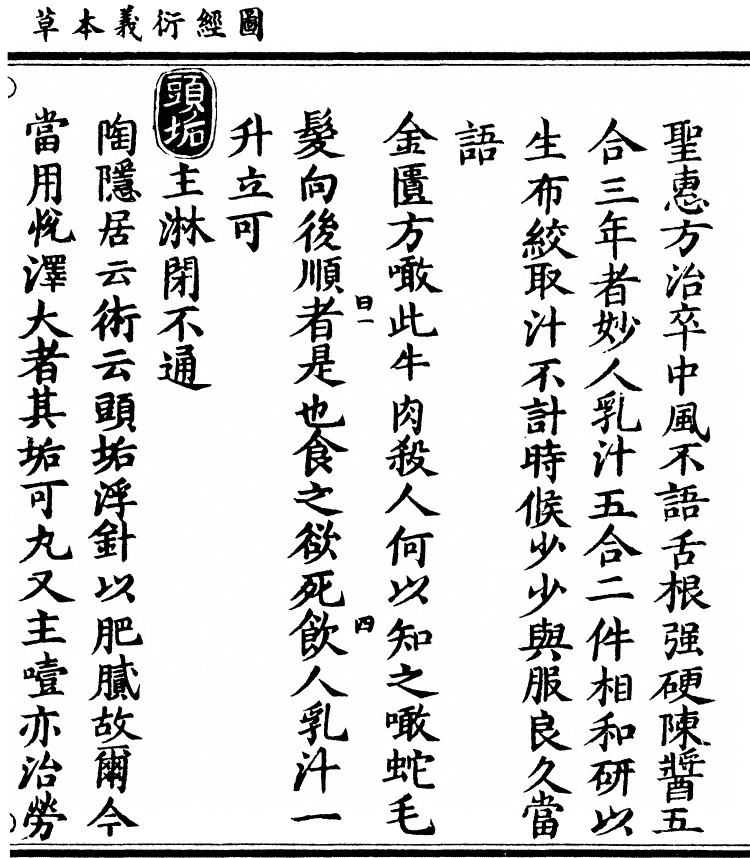 圖經衍義本草
聖惠方治卒中風不語舌根强硬陳醬五
合三年者妙人乳汁五合二件相和研以
生布絞取汁不計時候少少與服良久當
語
金匱方噉此牛肉殺人何以知之噉蛇毛
髮向後順者是也食之欲死飲人乳汁一
曰一
四
升立可
頭垢主淋閉不通
陶隱居云術云頭垢浮針以肥膩故爾今
當用悅澤大者其垢可丸又主噎亦治勞